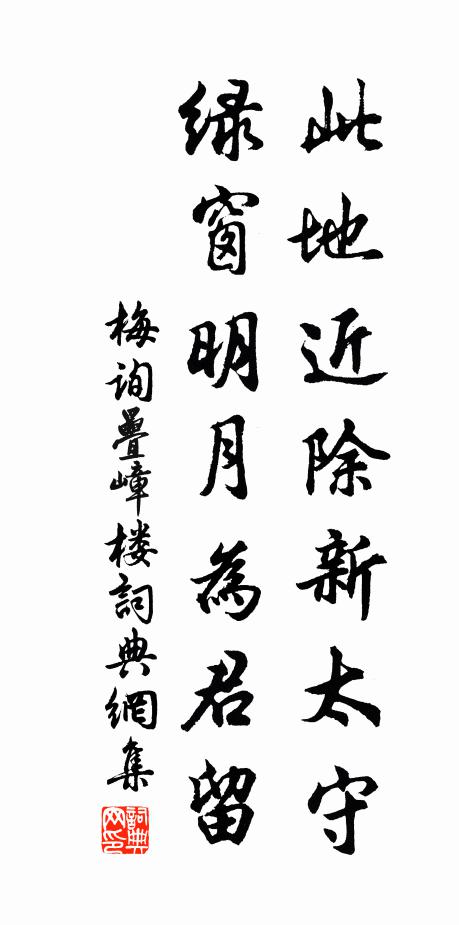 此地近除新太守
绿窗明月為君留
梅詢疊嶂楼詞典網集
詞典网印